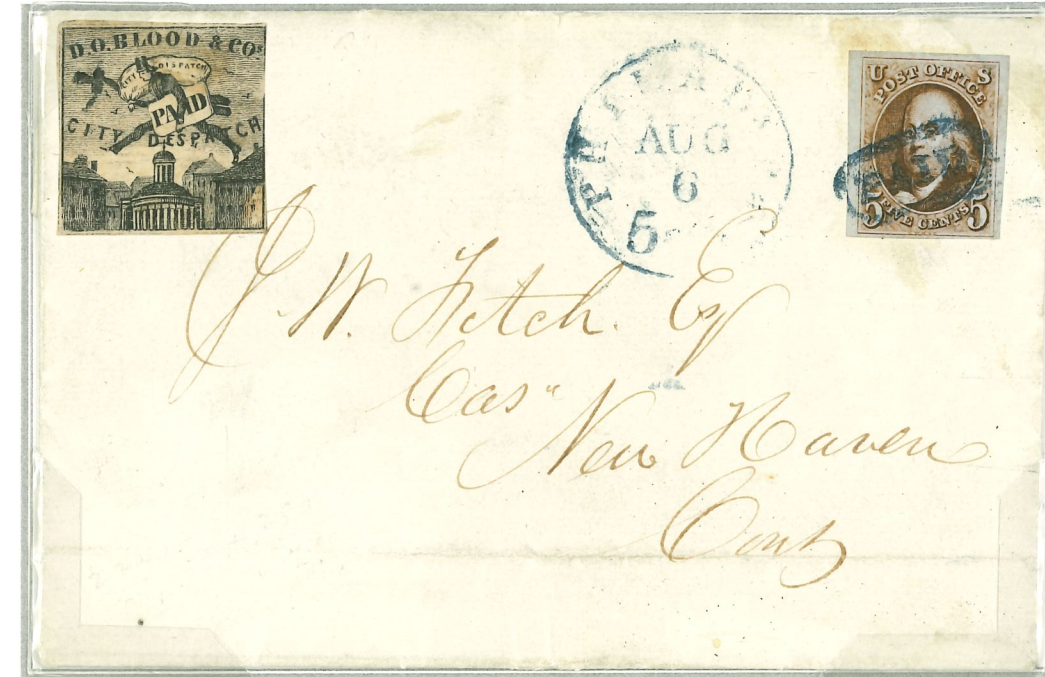 D.O. BLOOD & CO'S
CITY DISPATCH
PAID
CITY DESPATCH
PHILADA
AUG
6
5
U S
POST OFFICE
5 FIVE CENTS 5
J. W. Fitch. Esq
Cas"
New Haven
Cont